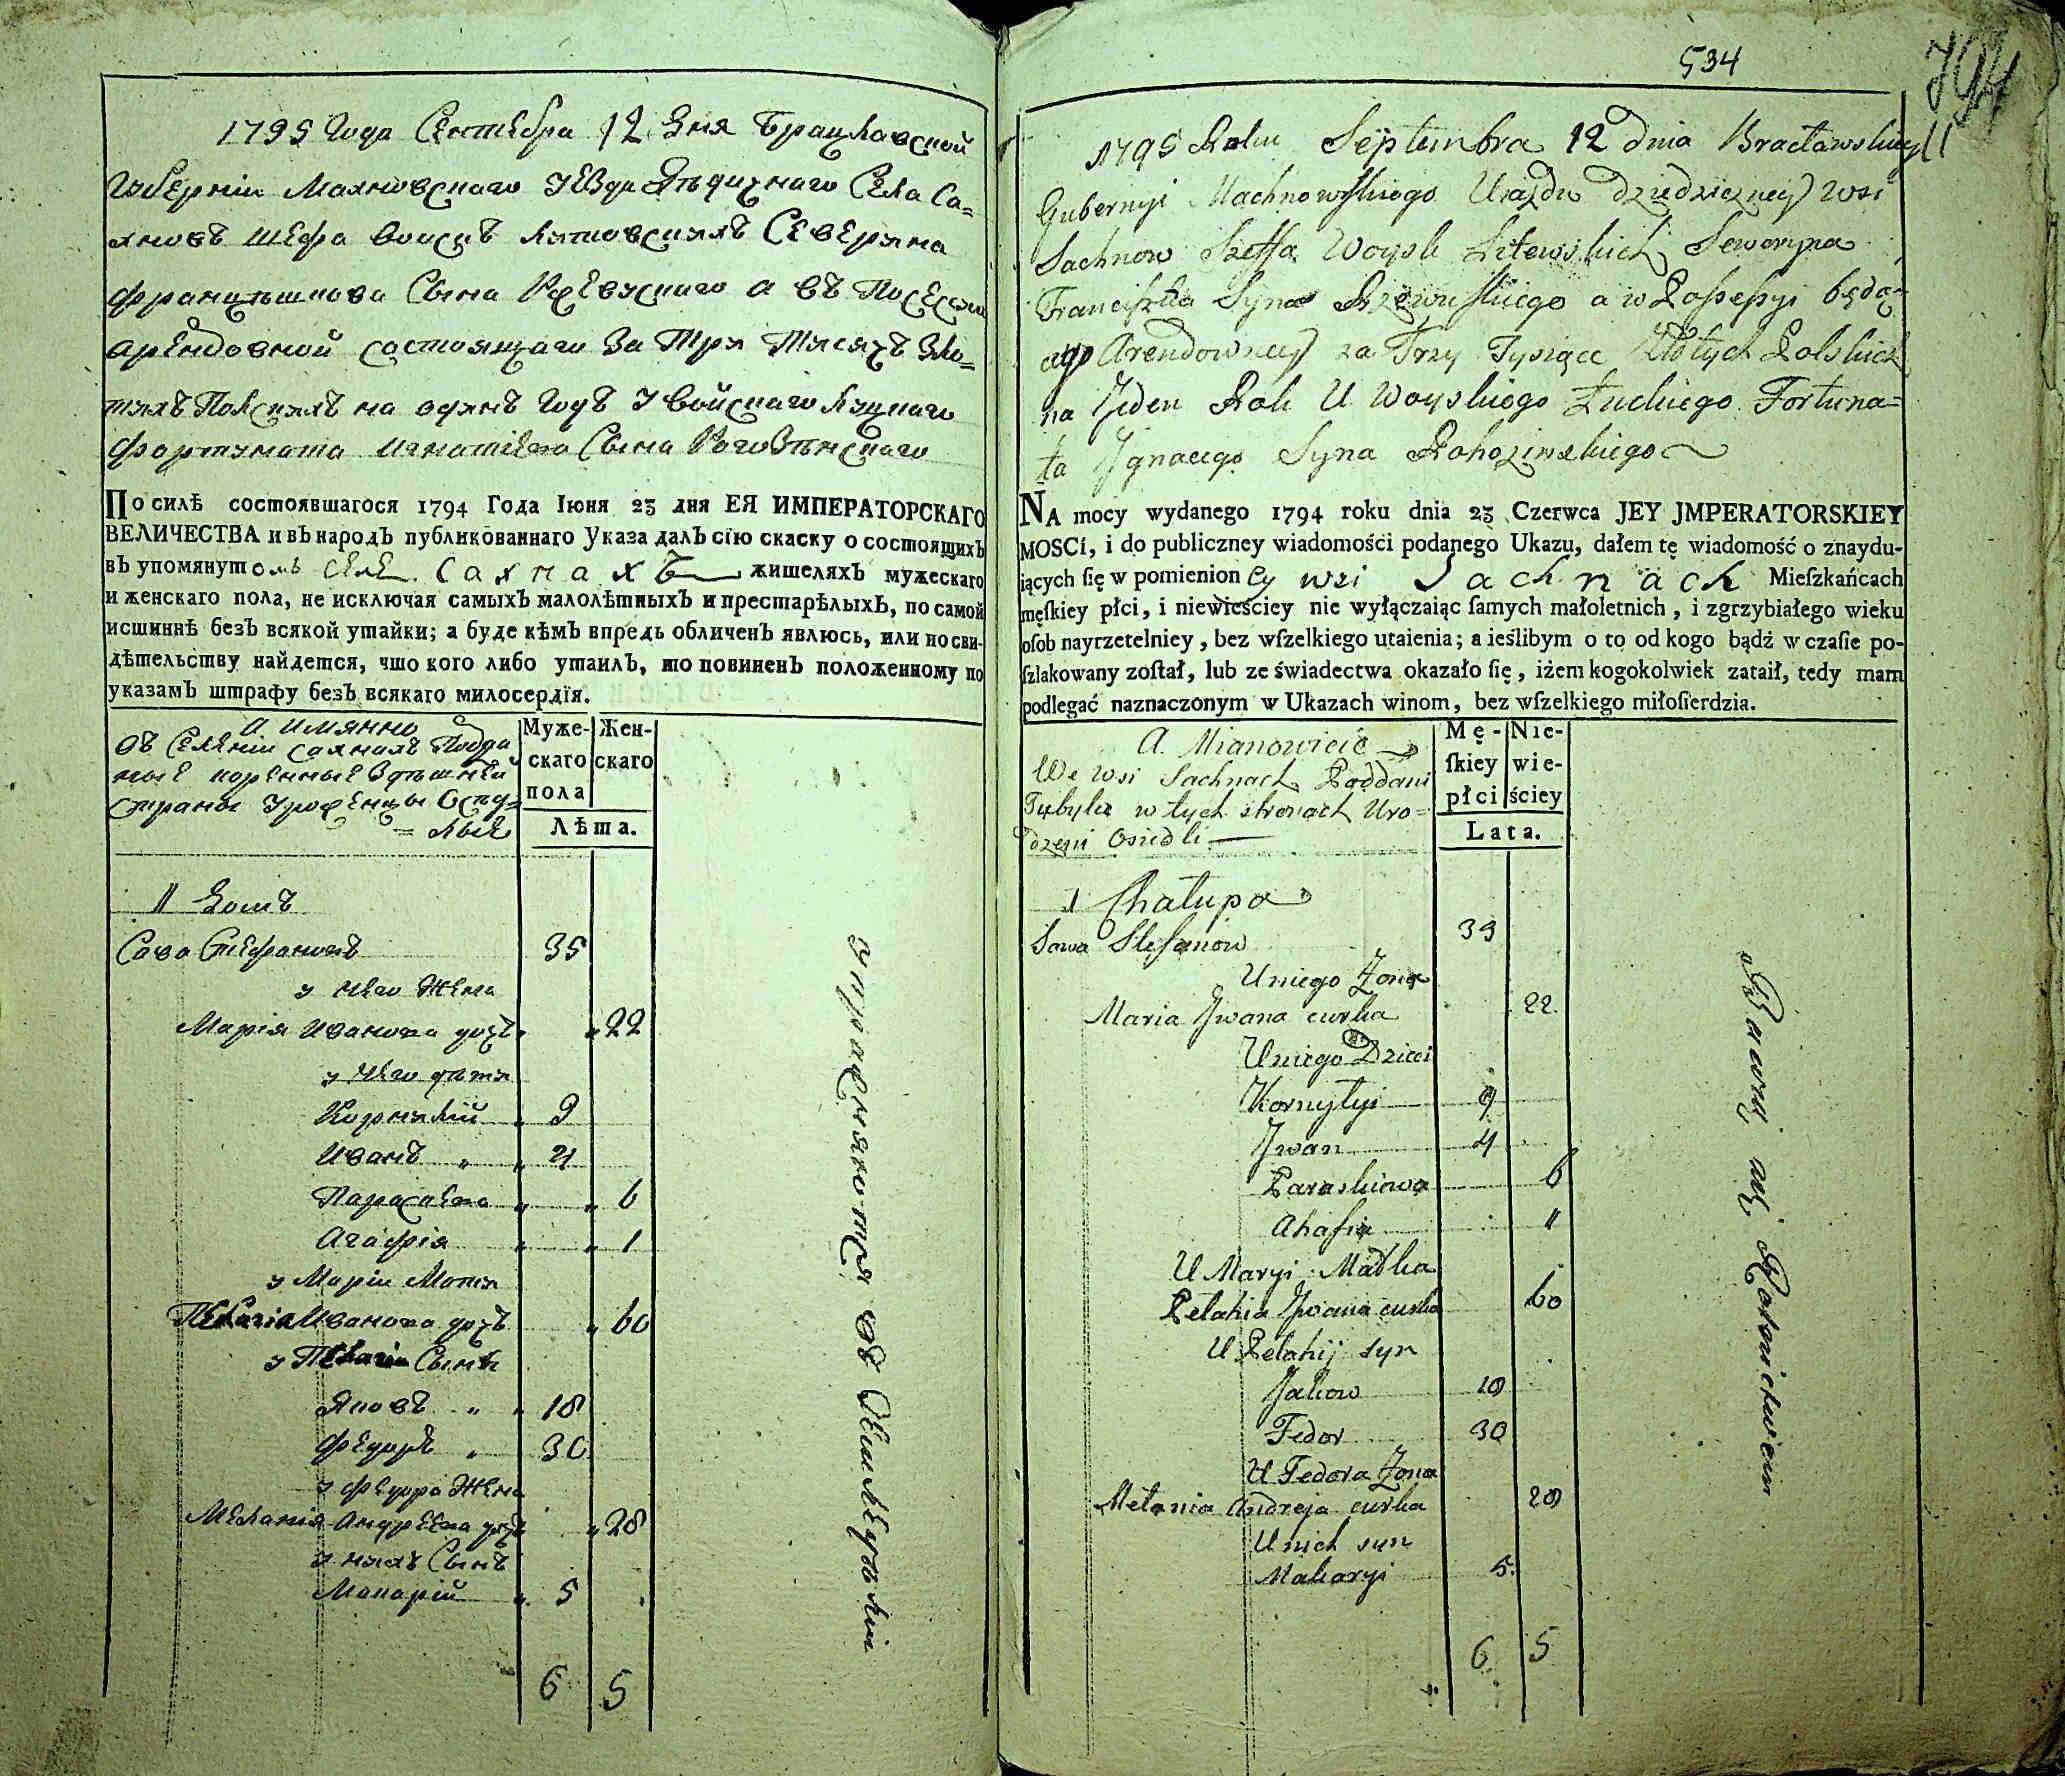 1795 Года Сентебра 12 дня Брацлавской
Губерніи Махновскаго уезда дѣдичнаго Села Са=
хновъ шефа войскъ литовскихъ Северина
Францишкова Сына Ржевускаго а въ Посесіи
арендовной состоящаго за Три Тисячъ Зло=
тихъ Полскихъ на одинъ годъ у войскаго луцкаго
Фортуната Игнатіева Сына Рогозѣнскаго
По силѣ состоявшагося 1794 Года Іюня 23 дня ЕЯ ИМПЕРАТОРСКАГО
ВЕЛИЧЕСТВА и въ народъ публикованнаго Указа далъ сію скаску о состоящихъ
въ упомянутомъ селе Сахнахъ жителяхъ мужескаго
и женскаго пола, не исключая самыхъ малолѣтныхъ и престарѣлыхъ, по самой
истиннѣ безъ всякой утайки; а буде кѣмъ впредь обличенъ явлюсь, или по сви-
дѣтельству найдется, что кого либо утаилъ, то повиненъ положенному по
указамъ штрафу безъ всякаго милосердїя.
А имянно
въ Селеніи Сахнахъ Подда
ные коренные здѣшней
страны уроженцы Осед=
= лые
Муже- Жен-
скаго скаго
пола
Лѣта.
1 Домъ
Сава Стефановъ 35
у него Жена
Марія Иванова дочь 22
у него дѣти
Корнилій 9
Иванъ 4
Параскева 6
Агафія 1
у Маріи Мати
Пелагія Иванова дочь 60
у Пелагіи Сынъ
Яковъ 18
Федоръ 30
у Федора Жена
Меланія Андреева дочь 28
у нихъ Сынъ
Макарій 5
6 5
упражняются въ земледѣліи
534
794
1795 Roku Septembra 12 dnia Bracławskiey
Gubernyi Machnowskiego Ujazdu dziedziczney wsi
Sachnow Szeffa Woysk Litewskich Seweryna
Franciszka Syna Rzewuskiego a w Possessyi będą=
cego Arendowney za Trzy Tysiące Złotych Polskich
na Jeden Rok U Woyskiego Łuckiego Fortuna=
ta Jgnacego Syna Rohozinskiego
NA mocy wydanego 1794 roku dnia 23 Czerwca JEY JMPERATORSKIEY
MOSCi, i do publiczney wiadomości podanego Ukazu, dałem tę wiadomość o znaydu-
iących ſię w pomienioney wsi Sachnach Mieſzkańcach
męſkiey płci, i niewieściey nie wyłączaiąc ſamych małoletnich, i zgrzybiałego wieku
oſob nayrzetelniey, bez wſzelkiego utaienia; a ieślibym o to od kogo bądź w czaſie po-
ſzlakowany zoſtał, lub ze świadectwa okazało ſię, iżem kogokolwiek zataił, tedy mam
podlegać naznaczonym w Ukazach winom, bez wſzelkiego miłoſierdzia.
A. Mianowicie
We wsi Sachnach Poddani
Tubylce w tych stronach Uro=
dzeni Osiedli
Mę- Nie-
ſkiey wie-
płci ściey
Lata.
1 Chałupa
Sawa Stefanow 33
U niego Żona
Maria Jwana curka 22
U niego Dzieci
Kornyłyi 9
Jwan 4
Paraskiewa 6
Ahafia 1
U Maryi Matka
Pelahia Jwana curka 60
U Pelahij syn
Jakow 18
Fedor 30
U Fedora Żona
Melania Andreja curka 28
U nich syn
Makaryi 5
6 5
Bawią się Rolnictwem